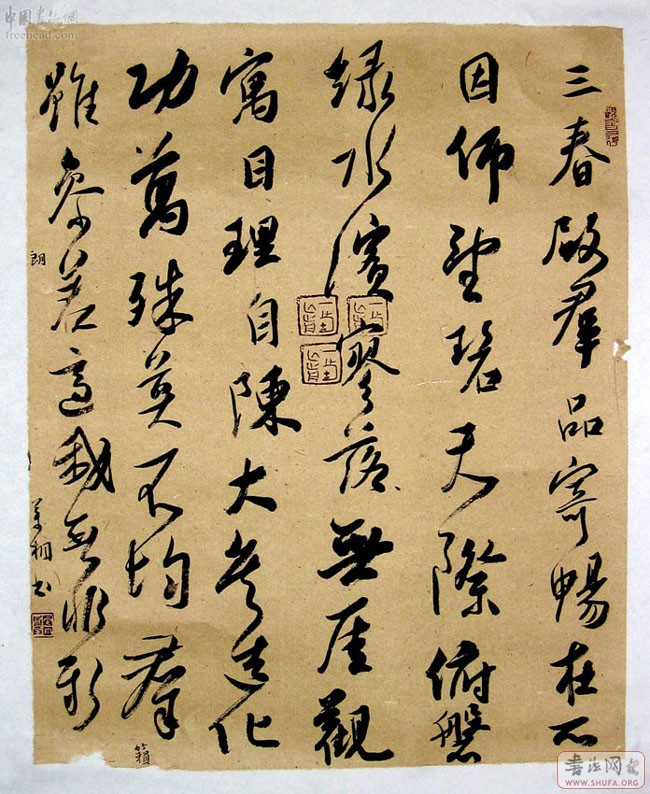 中国书法网
freehead.com
三春啟羣品寄暢在所
因仰望碧天際俯盤
緑水濱寥落無厓觀
寓目理自陳大矣造化
功萬殊莫不均羣
籟
雖參差適我無非新
朗
書
書法网
WWW.SHUFA.ORG